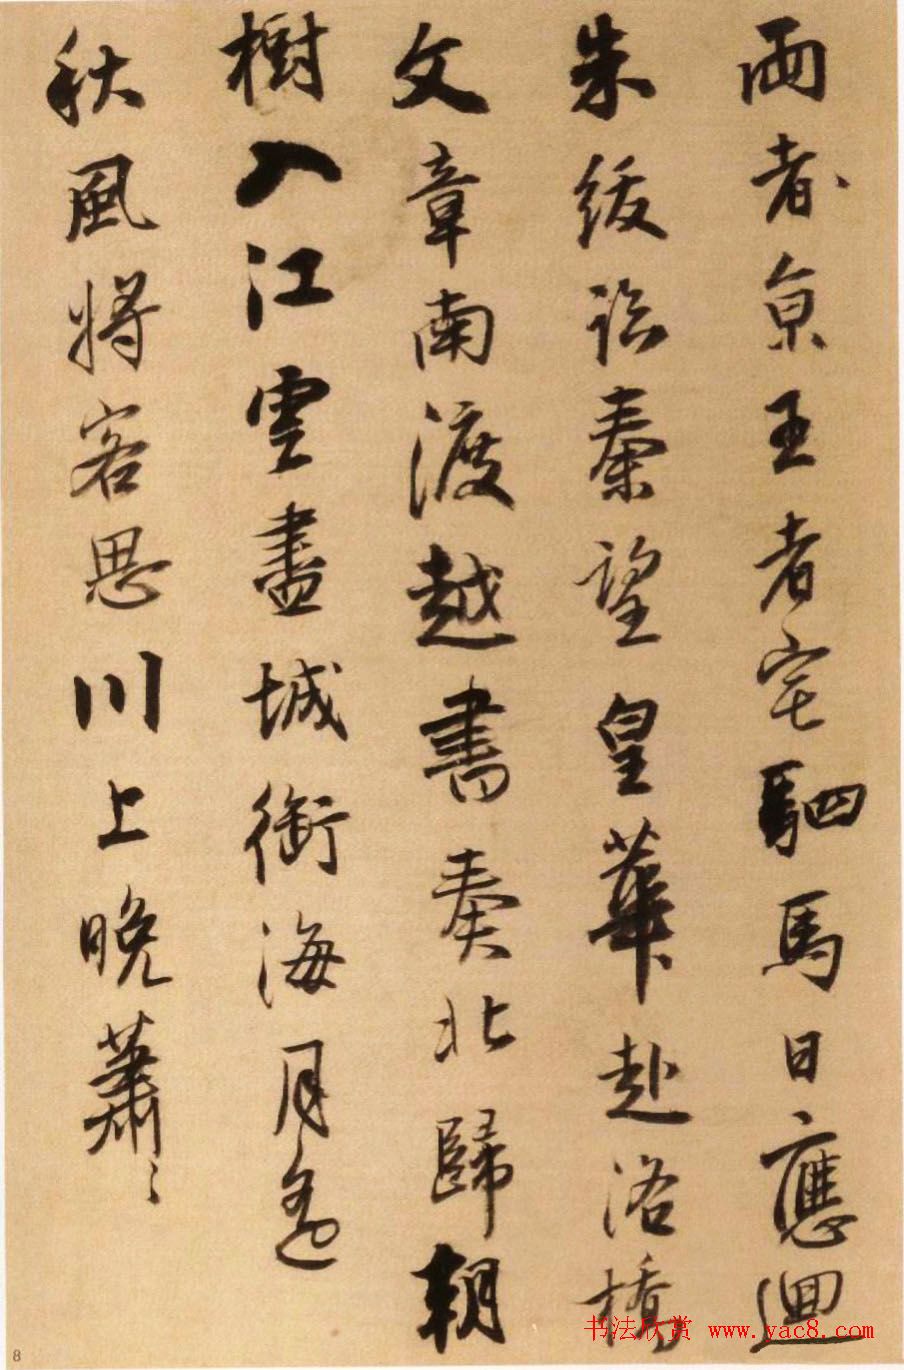 兩者京王者宅駟馬日應迴
朱紱詣秦望皇華赴洛橋
文章南渡越書奏北歸朝
樹入江雲盡城銜海月遙
秋風將客思川上晚蕭〻
书法欣赏 www.yac8.com
8